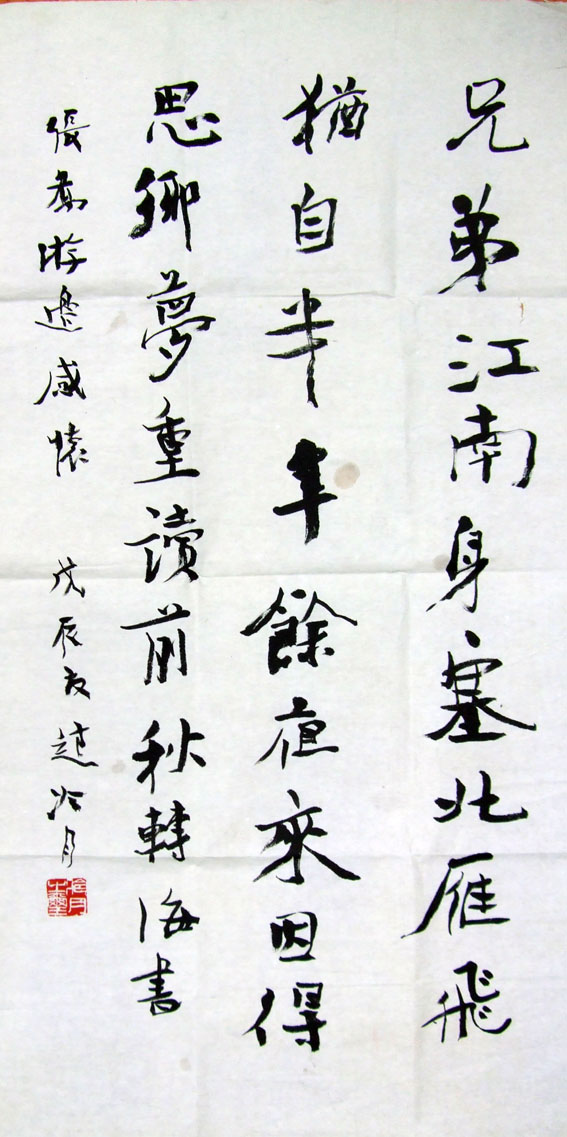 兄弟江南身塞北雁飛
猶自半年餘夜來因得
思鄉夢重讀前秋轉海書
張喬游邊感懷
戊辰夏趙冷月